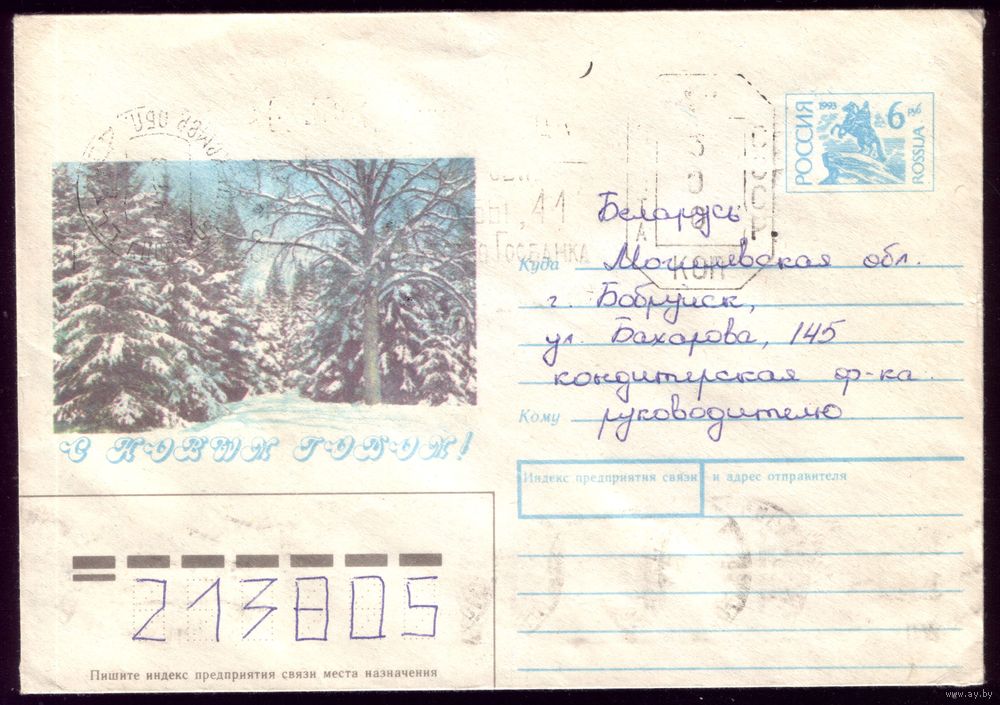 РОССИЯ 1993
№ 6 руб.
ROSSIJA
СССР
КОП
41
Госбанка
Беларусь
Куда Могилевская обл.
г. Бобруйск,
ул. Бахарова, 145
кондитерская ф-ка
Кому руководителю
С НОВЫМ ГОДОМ!
Индекс предприятия связи и адрес отправителя
213805
Пишите индекс предприятия связи места назначения
www.ay.by